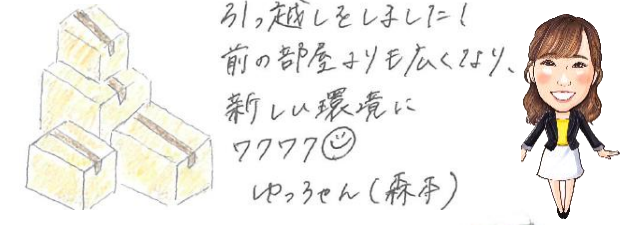 引っ越しをしました!
前の部屋よりも広くなり、
新しい環境に
ワクワク
ゆっちゃん(森本)